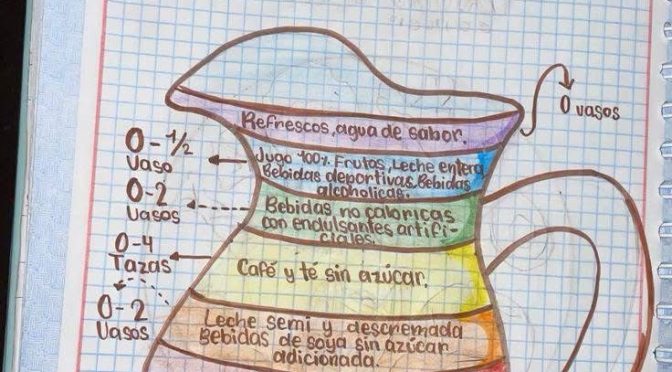 Refrescos, agua de sabor.
0 vasos
0-1/2
Vaso
Jugo 100% Frutas, Leche entera
Bebidas deportivas, Bebidas
alcoholicas.
0-2
Vasos
Bebidas no caloricas
con endulsantes artifi-
ciales.
0-4
Tazas
Café y té sin azúcar.
0-2
Vasos
Leche semi y descremada
Bebidas de soya sin azúcar
adicionada.